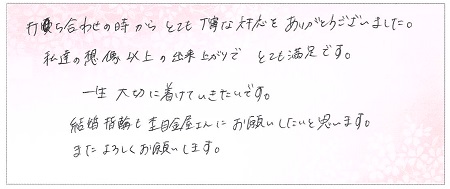 打ち合わせの時からとても丁寧な対応をありがとうございました。
私達の想像以上の出来上がりでとても満足です。
一生大切に着けていきたいです。
結婚指輪も杢目金屋さんにお願いしたいと思います。
またよろしくお願いします。